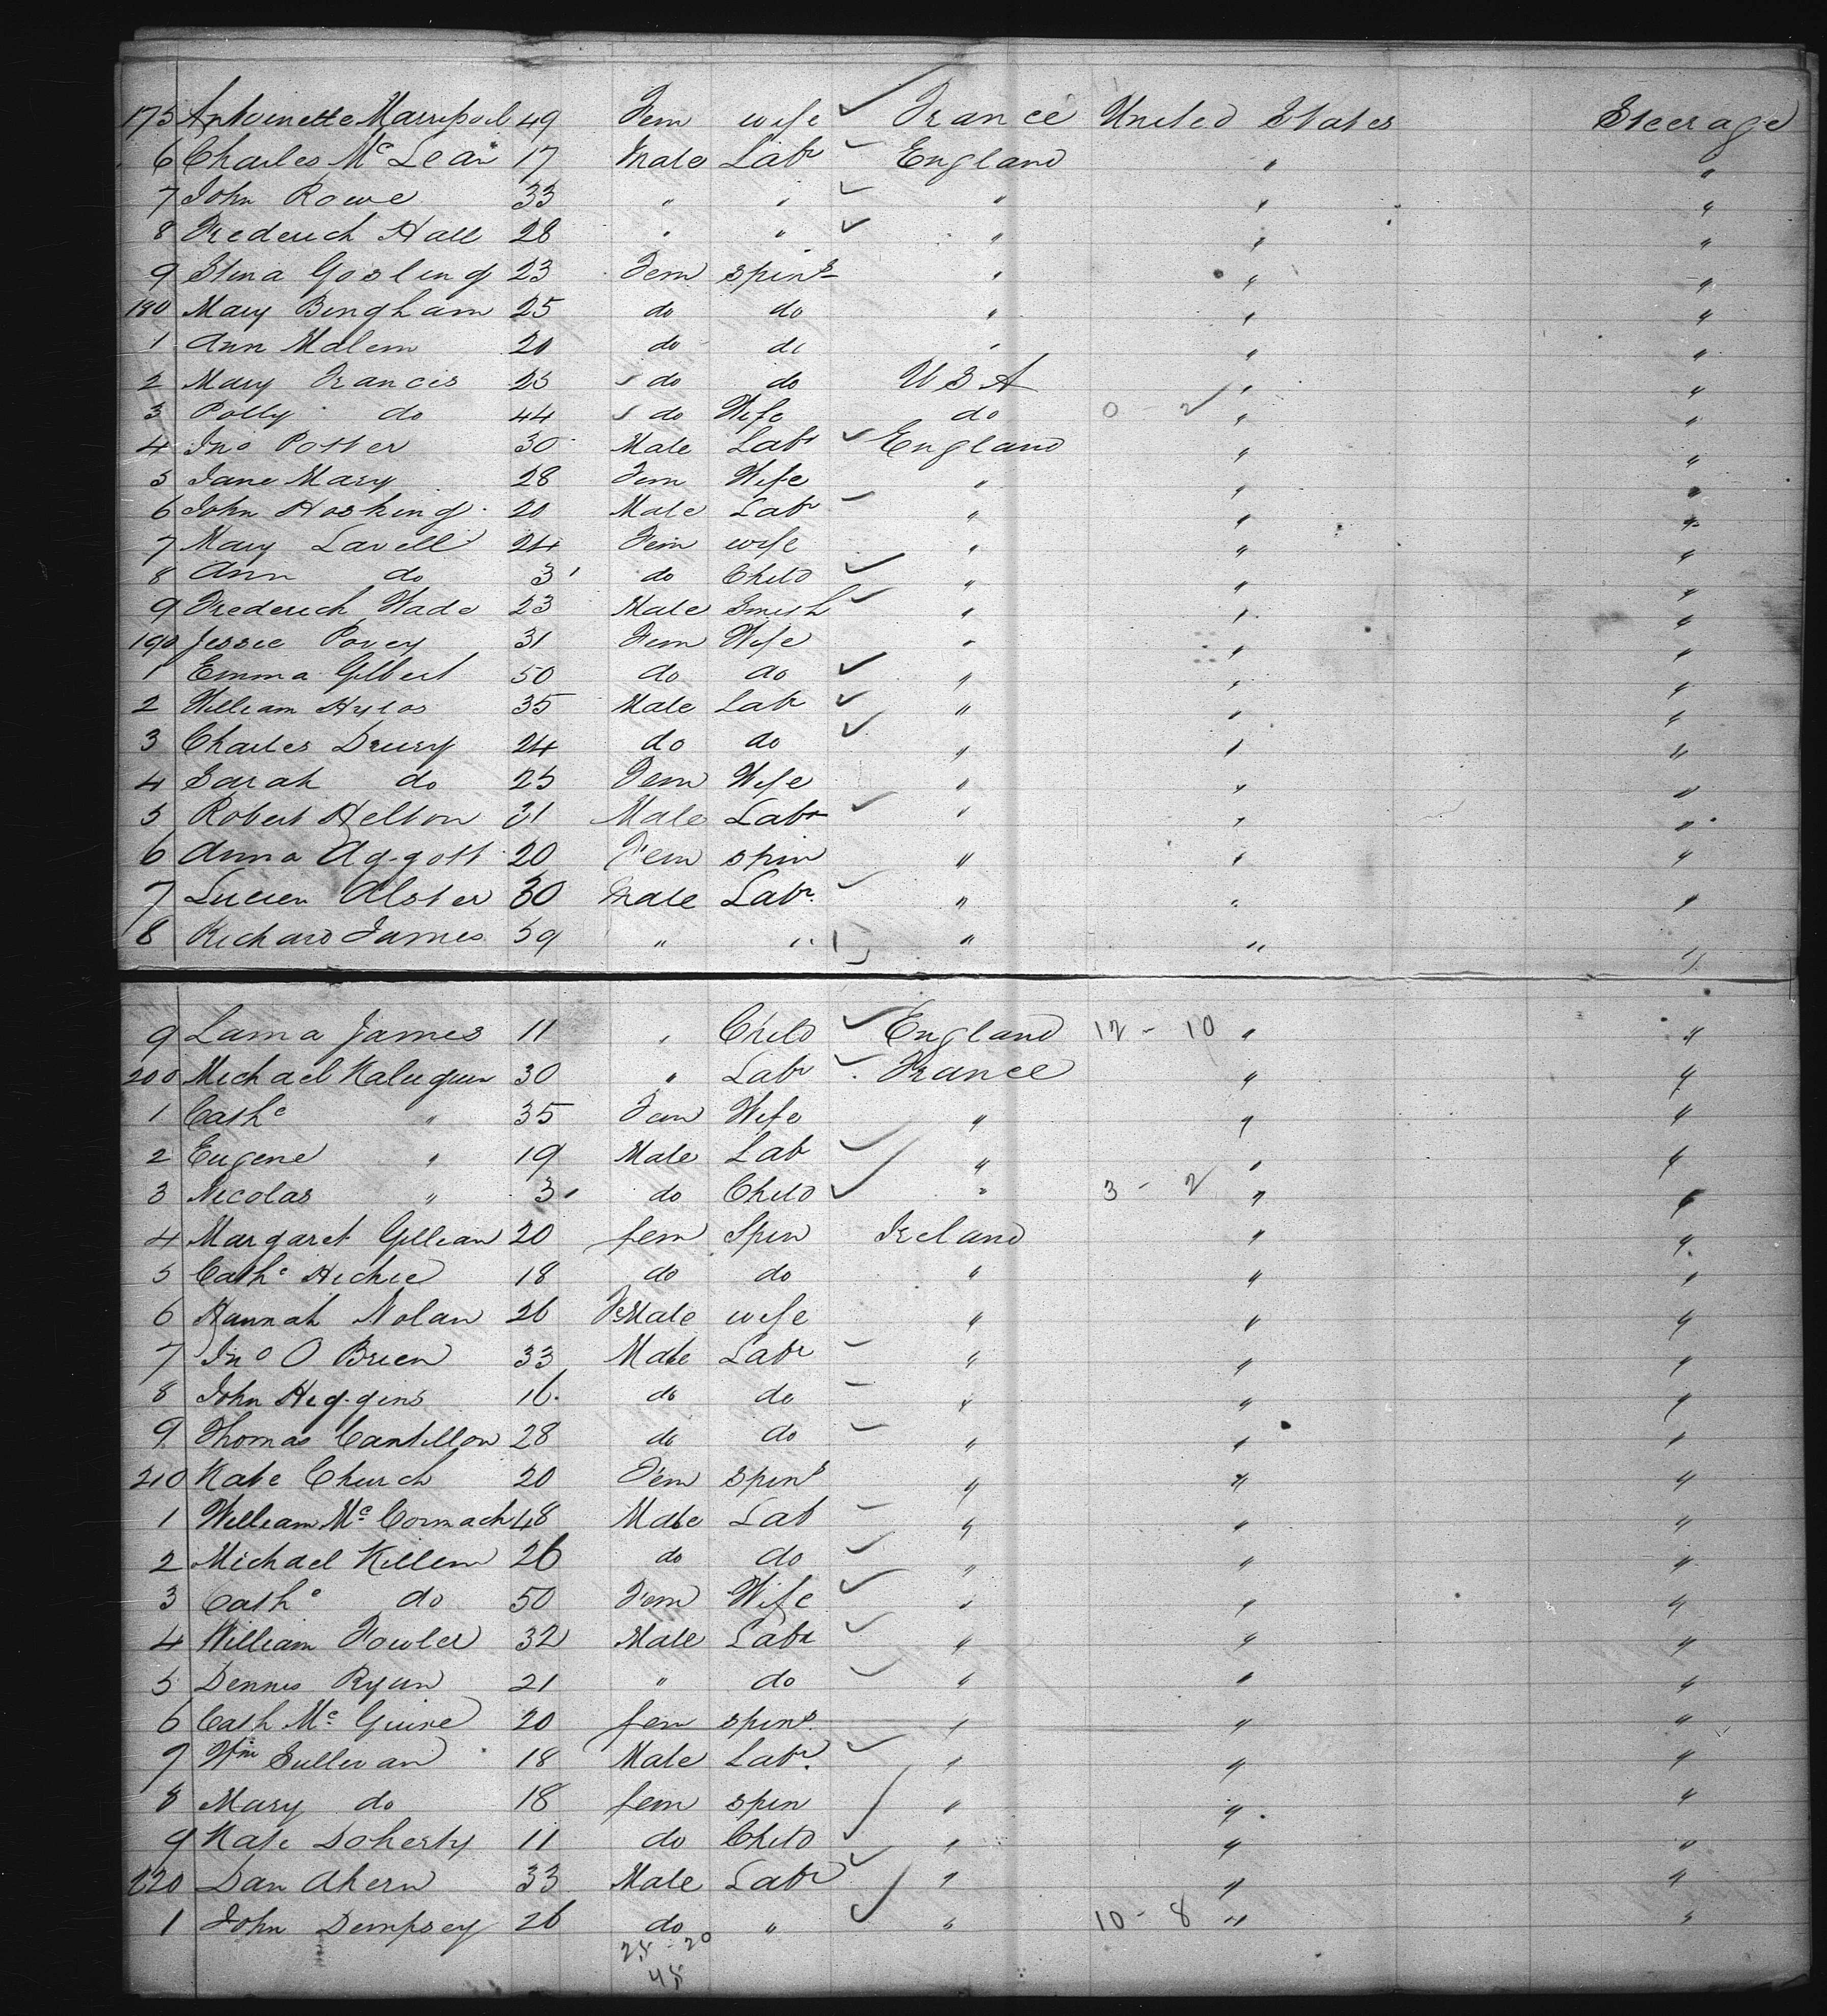 175 Antoinette 49 Fem wife France United States Steerage
6 Charles Mc Lean 17 Male Labr England " "
7 John Rowe 33 " " " " "
8 Frederich Hall 28 " " " " "
9 Stina Gosling 23 Fem spins " " "
180 Mary Bingham 25 do do " " "
1 Ann Malem 20 do do " " "
2 Mary Francis 23 do do U S A " "
3 Polly do 44 do Wife do 0 - 2 " "
4 Jno Potter 30 Male Labr England " "
5 Jane Mary 28 Fem Wife " " "
6 John Hosking 20 Male Labr " " "
7 Mary Lavell 24 Fem wife " " "
8 Ann do 3 do Child " " "
9 Frederich Wade 23 Male Smith " " "
190 Jessie Povey 31 Fem Wife " " "
1 Emma Gilbert 50 do do " " "
2 William 35 Male Labr " " "
3 Charles Drury 24 do do " " "
4 Sarah do 25 Fem Wife " " "
5 Robert Helton 31 Male Labr " " "
6 Anna Aggott 20 Fem spin " " "
7 Lucien Alster 30 Male Labr " " "
8 Richard James 59 " " " " "
9 Lama James 11 " Child England 12 - 10 " "
200 Michael 30 " Labr France " "
1 Cathe " 35 Fem Wife " " "
2 Eugene " 19 Male Lab " " "
3 Nicolas " 3 do Child " 3 - 2 " "
4 Margaret Gillian 20 fem Spin Ireland " "
5 Cathe Hickie 18 do do " " "
6 Hannah Nolan 26 FeMale wife " " "
7 Jno O Brien 33 Male Labr " " "
8 John Higgins 16 do do " " "
9 Thomas Cantillon 28 do do " " "
210 Kate Church 20 Fem spins " " "
1 William Mc Cormach 48 Male Lab " " "
2 Michael Killem 26 do do " " "
3 Cathe do 50 Fem Wife " " "
4 William Fowler 32 Male Labr " " "
5 Dennis Ryan 21 " do " " "
6 Cath Mc Guire 20 fem spins " " "
7 Wm Sullivan 18 Male Labr " " "
8 Mary do 18 fem spin " " "
9 Kate Doherty 11 do Child " " "
220 Dan Ahern 33 Male Labr " " "
1 John Dempsey 26 do " " 10 - 8 " "
25 - 20
45